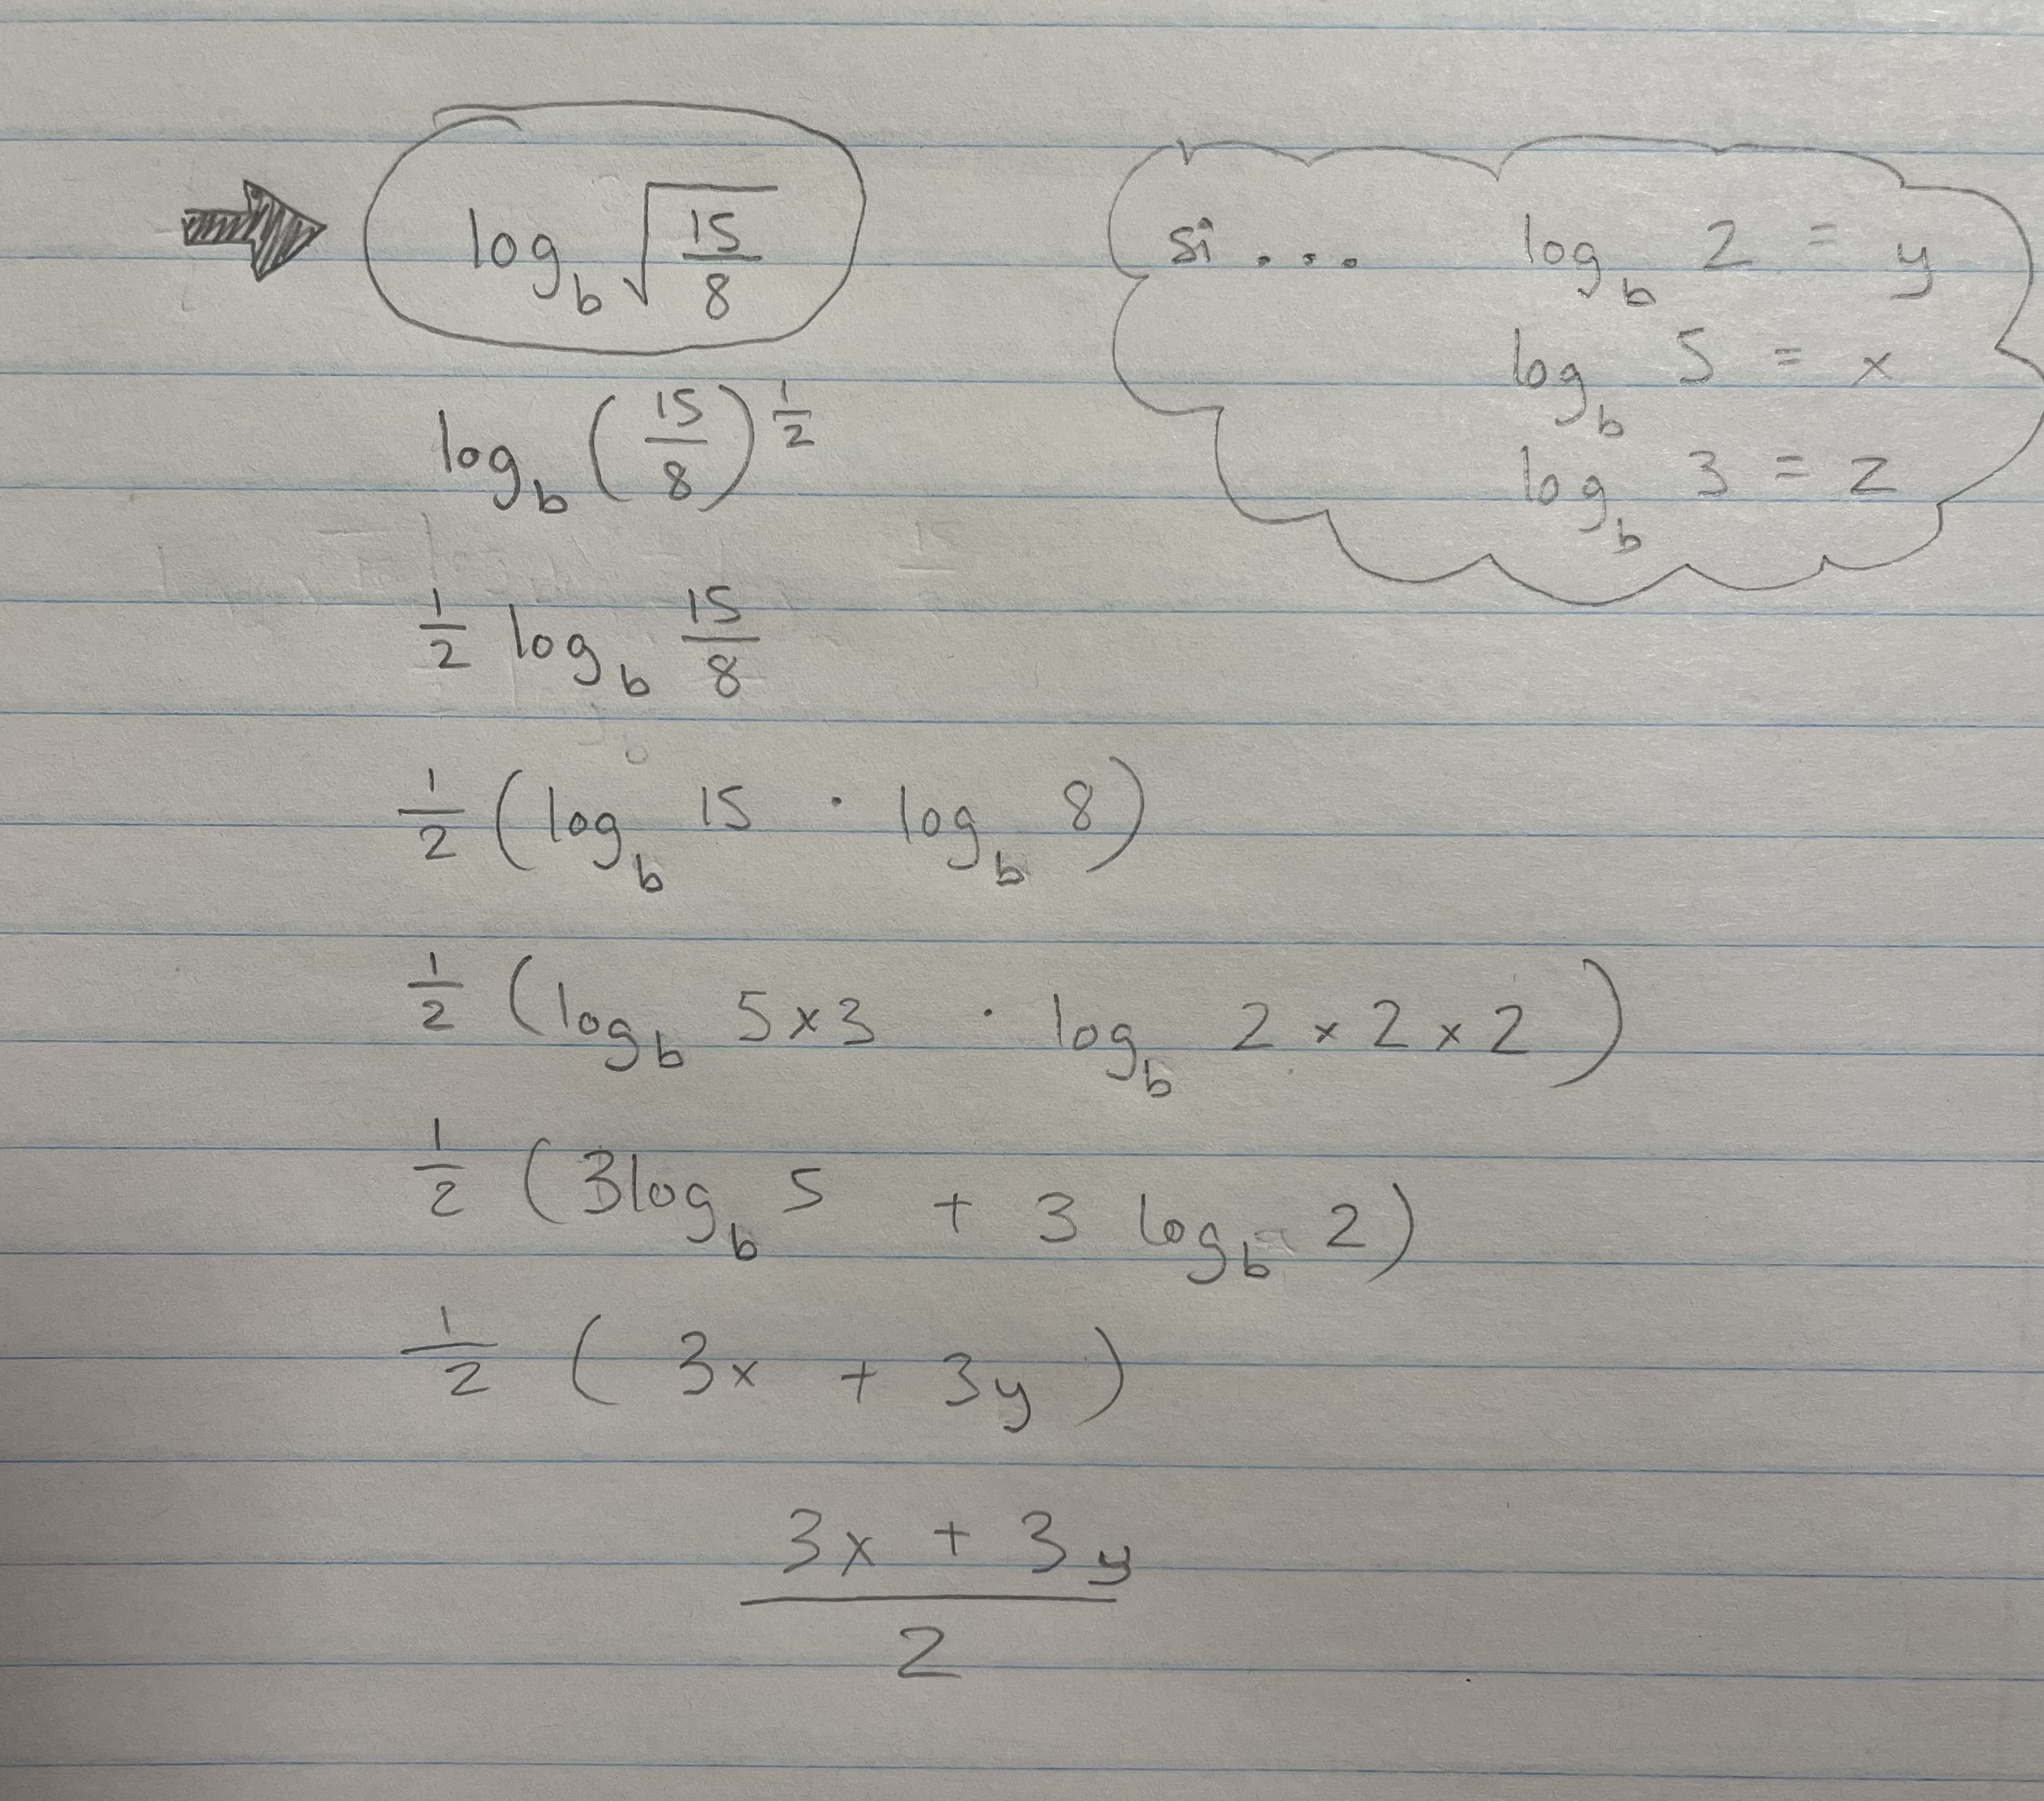 log_b √(15/8)
si . . . log_b 2 = y
log_b 5 = x
log_b 3 = z
log_b (15/8)^(1/2)
1/2 log_b 15/8
1/2 (log_b 15 · log_b 8)
1/2 (log_b 5×3 · log_b 2×2×2)
1/2 (3log_b 5 + 3 log_b 2)
1/2 (3x + 3y)
(3x + 3y)/2